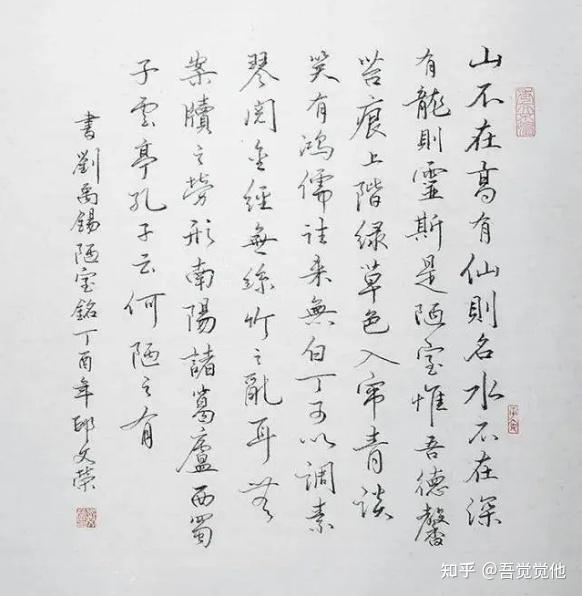 山不在高有仙則名水不在深
有龍則靈斯是陋室惟吾德馨
苔痕上階綠草色入帘青談
笑有鸿儒往来無白丁可以調素
琴閱金經無絲竹之亂耳无
案牘之勞形南陽諸葛廬西蜀
子雲亭孔子云何陋之有
書劉禹錫陋室銘丁酉年邱文榮
知乎 @吾觉觉他